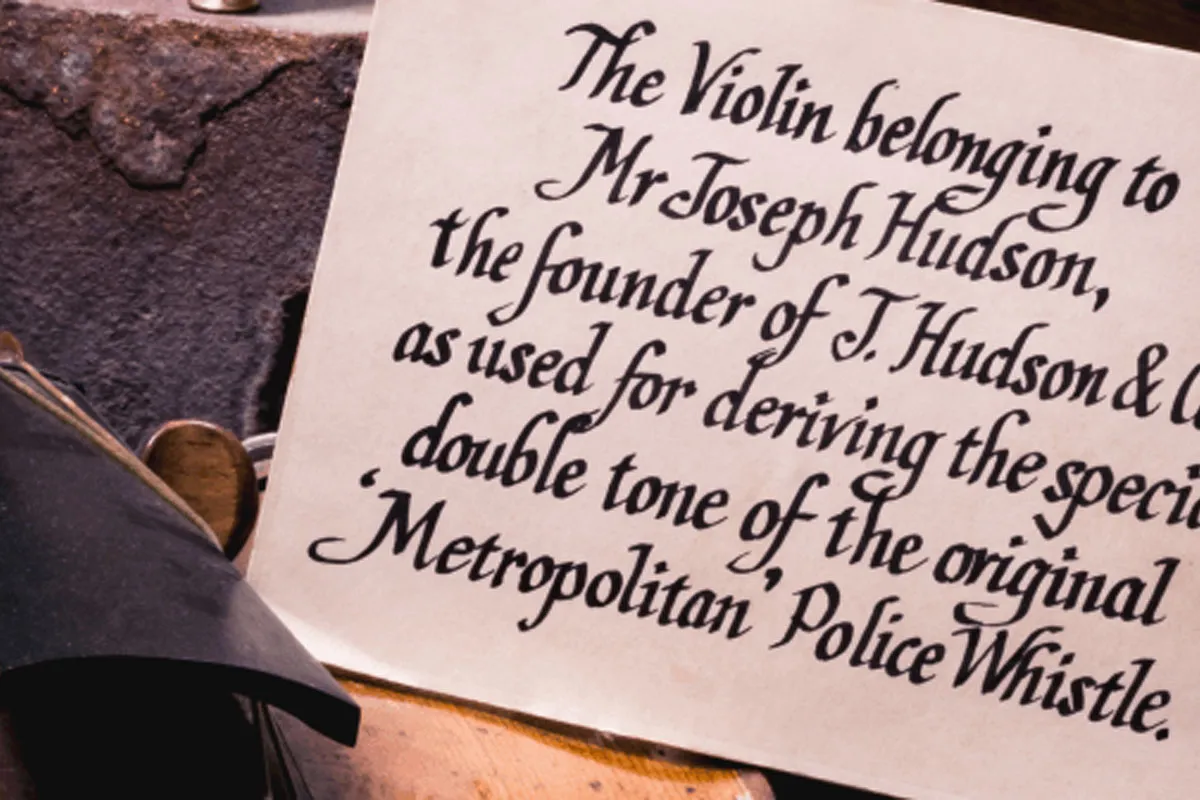 The Violin belonging to
Mr Joseph Hudson,
the founder of J. Hudson &
as used for deriving the
double tone of the original
‘Metropolitan’ Police Whistle.